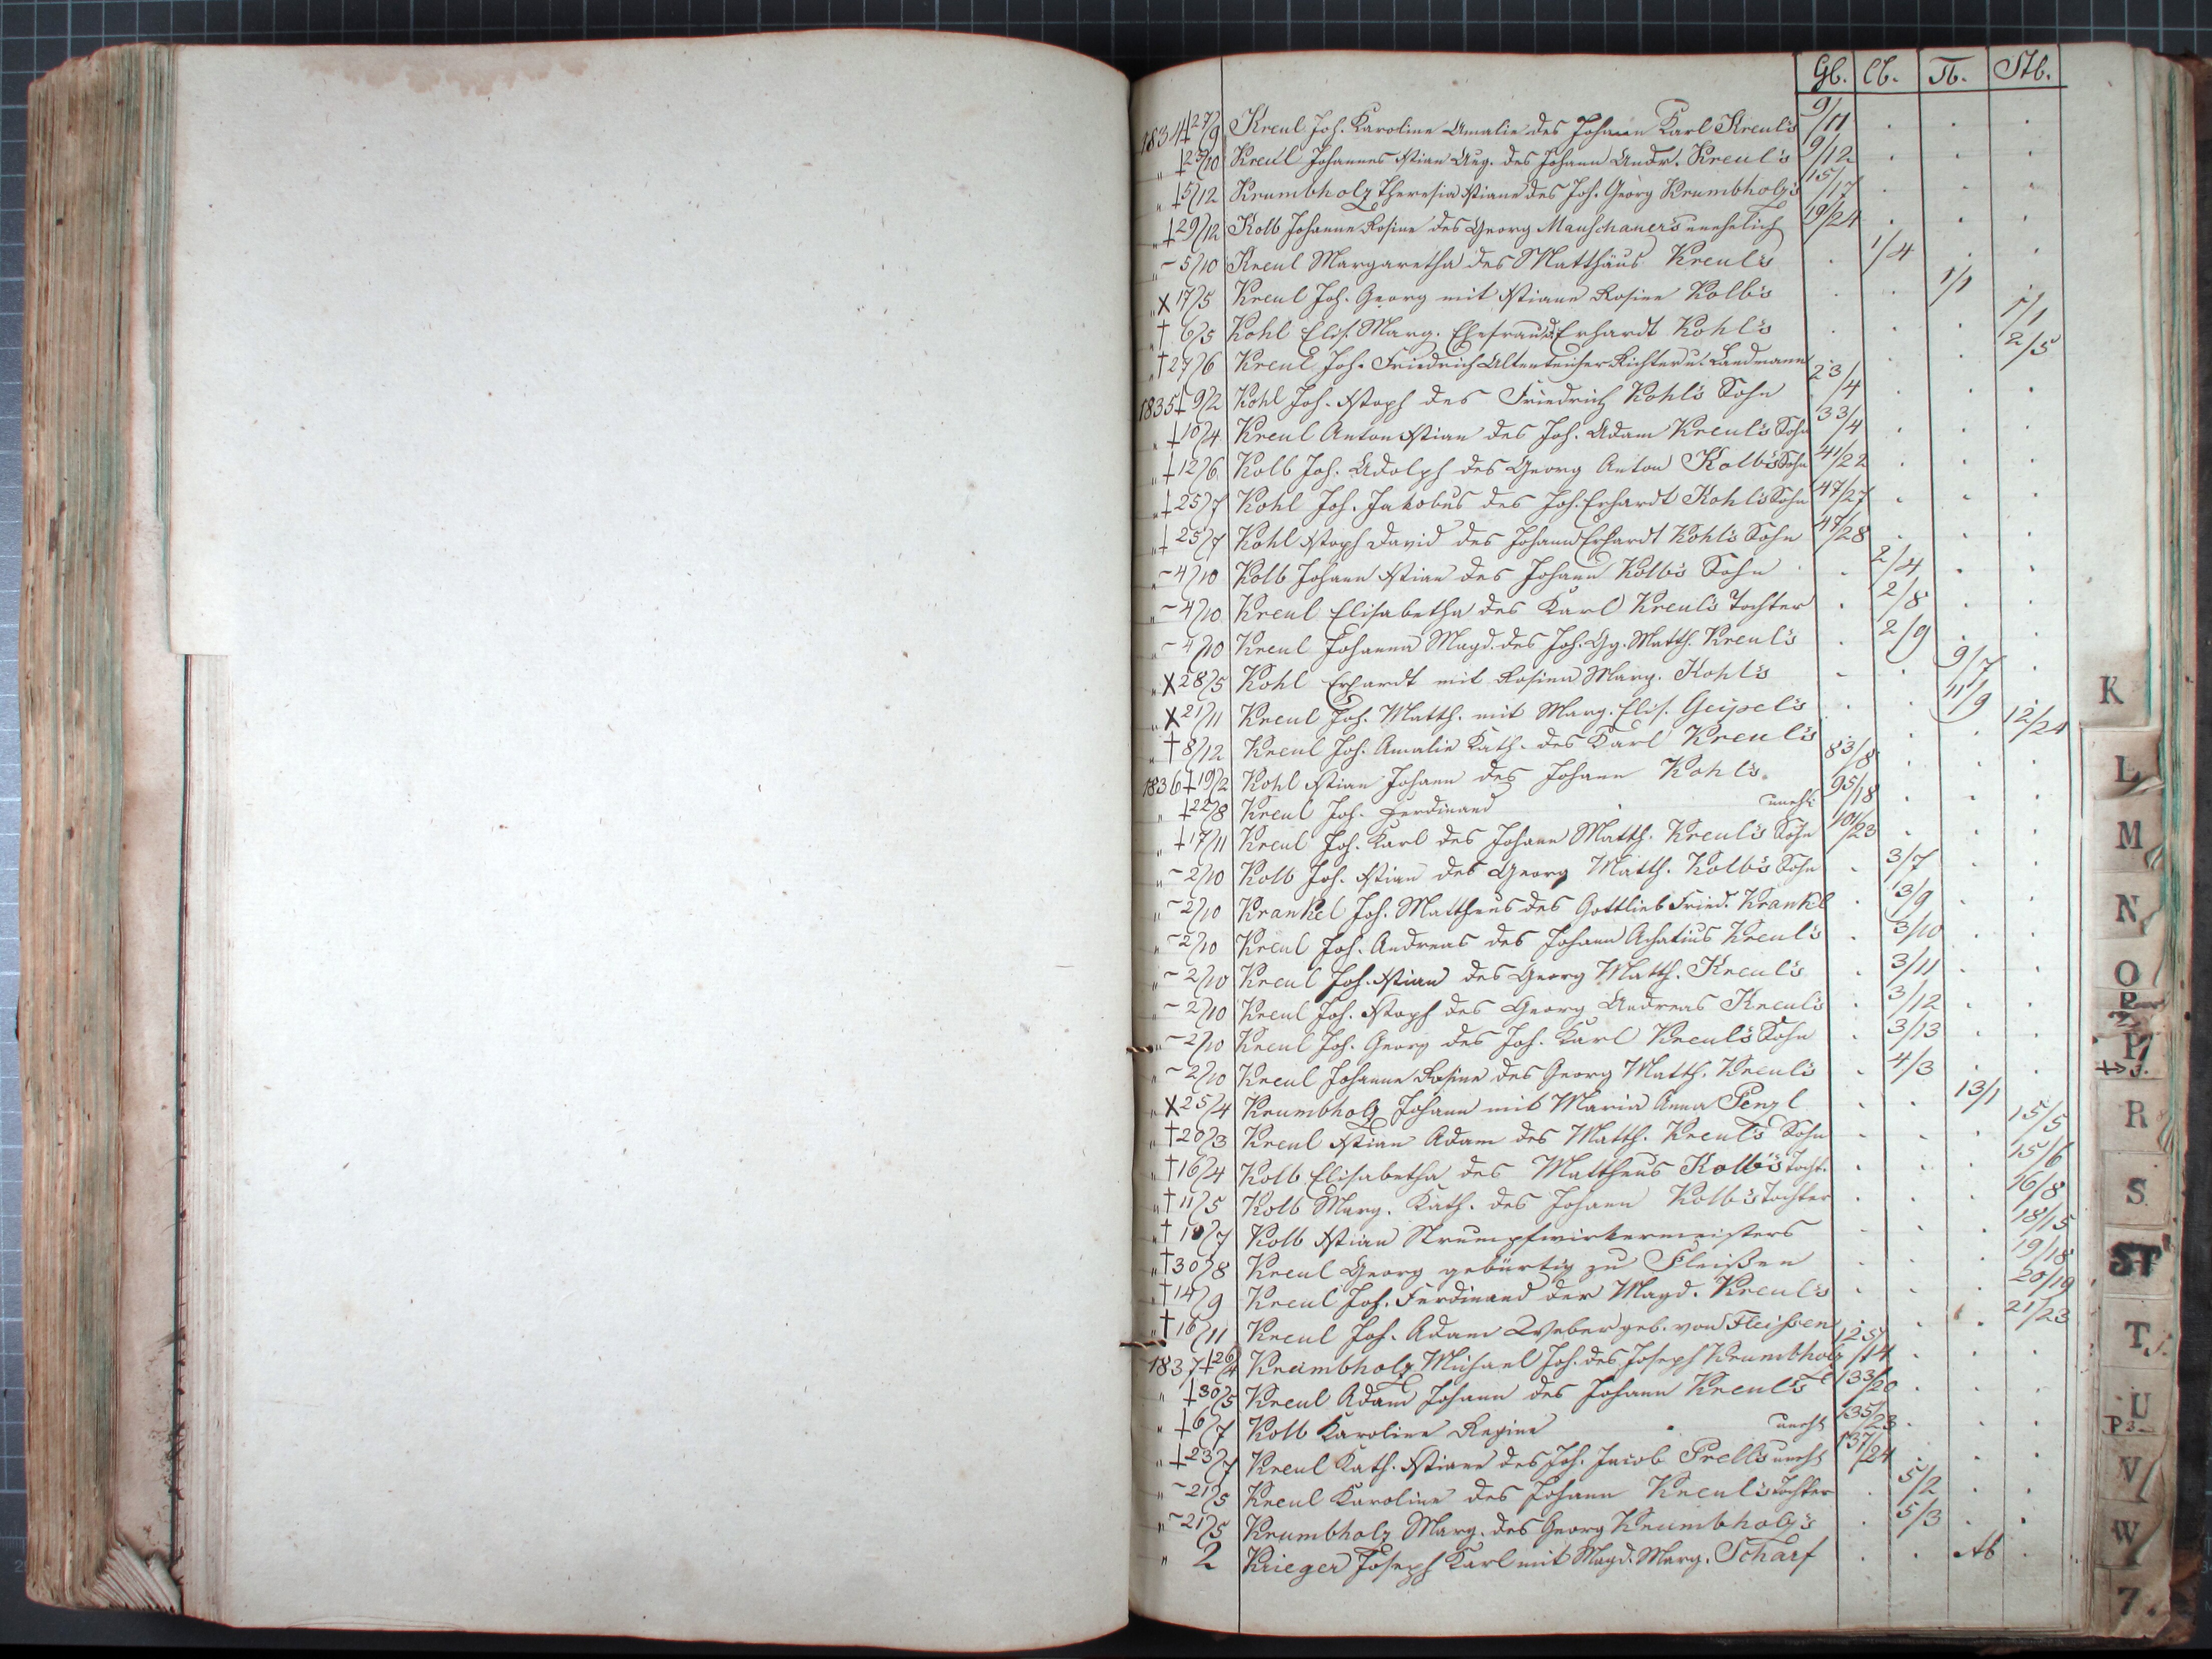 Gb. Cb. Tb. Stb.
1834 ‡27/9 Kreul Joh. Karoline Amalie des Johann Karl Kreul's 9/11 . . .
" ‡25/10 Kreul Johannes Xstian Aug. des Johann Andr. Kreul's 9/12 . . .
" ‡5/12 Krumbholz Theresia Xstiane des Joh. Georg Krumbholz's 15/17 . . .
" ‡29/12 Kolb Johanne Rosine des Georg unehelich 19/24 . . .
" ~ 5/10 Kreul Margaretha des Matthäus Kreul's . 1/4 . .
" X 17/5 Kreul Joh. Georg mit Xstiane Rosine Kolb's . . 1/1 .
" † 6/5 Kohl Elis. Marg. Ehefrau d. Erhardt Kohl's . . . 1/1
" † 27/6 Kreul Joh. Friedrich Richter u. Landmann . . . 2/5
1835 ‡ 9/2 Kohl Joh. Xstoph des Friedrich Kohl's Sohn 23/4 . . .
" ‡10/4 Kreul Anton Xstian des Joh. Adam Kreul's Sohn 33/4 . . .
" ‡12/6 Kolb Joh. Adolph des Georg Anton Kolb's Sohn 41/22 . . .
" ‡25/7 Kohl Joh. Jakobus des Joh. Erhardt Kohl's Sohn 47/27 . . .
" ‡ 25/7 Kohl Xstoph David des Johann Erhardt Kohl's Sohn 47/28 . . .
" ~ 4/10 Kolb Johann Xstian des Johann Kolb's Sohn . 2/4 . .
" ~ 4/10 Kreul Elisabetha des Karl Kreul's Tochter . 2/8 . .
" ~ 4/10 Kreul Johanna Magd. des Joh. Gg. Matth. Kreul's . 2/9 . .
" X 28/5 Kohl Erhardt mit Rosina Marg. Kohl's . . 9/7 .
" X 21/11 Kreul Joh. Matth. mit Marg. Elis. Geipel's . . 11/9 .
" † 8/12 Kreul Joh. Amalie Kath. des Karl Kreul's . . . 12/24
1836 ‡ 19/2 Kohl Xstian Johann des Johann Kohl's. 83/8 . . .
" ‡22/8 Kreul Joh. Ferdinand unehl. 95/18 . . .
" ‡17/11 Kreul Joh. Karl des Johann Matth. Kreul's Sohn 101/23 . . .
" ~ 2/10 Kolb Joh. Xstian des Georg Matth. Kolb's Sohn . 3/7 . .
" ~ 2/10 Krankel Joh. Mattheus des Gottlieb Fried. Krankl . 3/9 . .
" ~ 2/10 Kreul Joh. Andreas des Johann Achatius Kreul's . 3/10 . .
" ~ 2/10 Kreul Joh. Xstian des Georg Matth. Kreul's . 3/11 . .
" ~ 2/10 Kreul Joh. Xstoph des Georg Andreas Kreul's . 3/12 . .
" ~ 2/10 Kreul Joh. Georg des Joh. Karl Kreul's Sohn . 3/13 . .
" ~ 2/10 Kreul Johanne Rosine des Georg Matth. Kreul's . 4/3 . .
" X 25/4 Krumbholz Johann mit Maria Anna Penzl . . 13/1 .
" † 20/3 Kreul Xstian Adam des Matth. Kreul's Sohn . . . 15/5
" † 16/4 Kolb Elisabetha des Mattheus Kolb's Tocht. . . . 15/6
" † 11/5 Kolb Marg. Kath. des Johann Kolb's Tochter . . . 16/8
" † /7 Kolb Xstian Strumpfwirkermeisters . . . 18/15
" † 30/8 Kreul Georg gebürtig zu Fleißen . . . 19/18
" † 14/9 Kreul Joh. Ferdinand der Magd. Kreul's . . . 20/19
" † 16/11 Kreul Joh. Adam Weber geb. von Fleissen . . . 21/23
1837 ‡ 26/4 Krumbholz Michael Joh. des Joseph Krumbholz 125/14 . . .
" ‡ 30/5 Kreul Adam Johann des Johann Kreul's 133/20 . . .
" ‡ 6/7 Kolb Karoline Regine unehl. 135/23 . . .
" ‡ 23/7 Kreul Kath. Xstiane des Joh. Jacob Prell's unehl. 137/24 . . .
" ~ 21/5 Kreul Karoline des Johann Kreul's Tochter . 5/2 . .
" ~ 21/5 Krumbholz Marg. des Georg Krumbholz's . 5/3 . .
" 2 Krieger Joseph Karl mit Magd. Marg. Scharf . . .
K
L
M
N
O
P
R
S
ST
T
U
V
W
7.